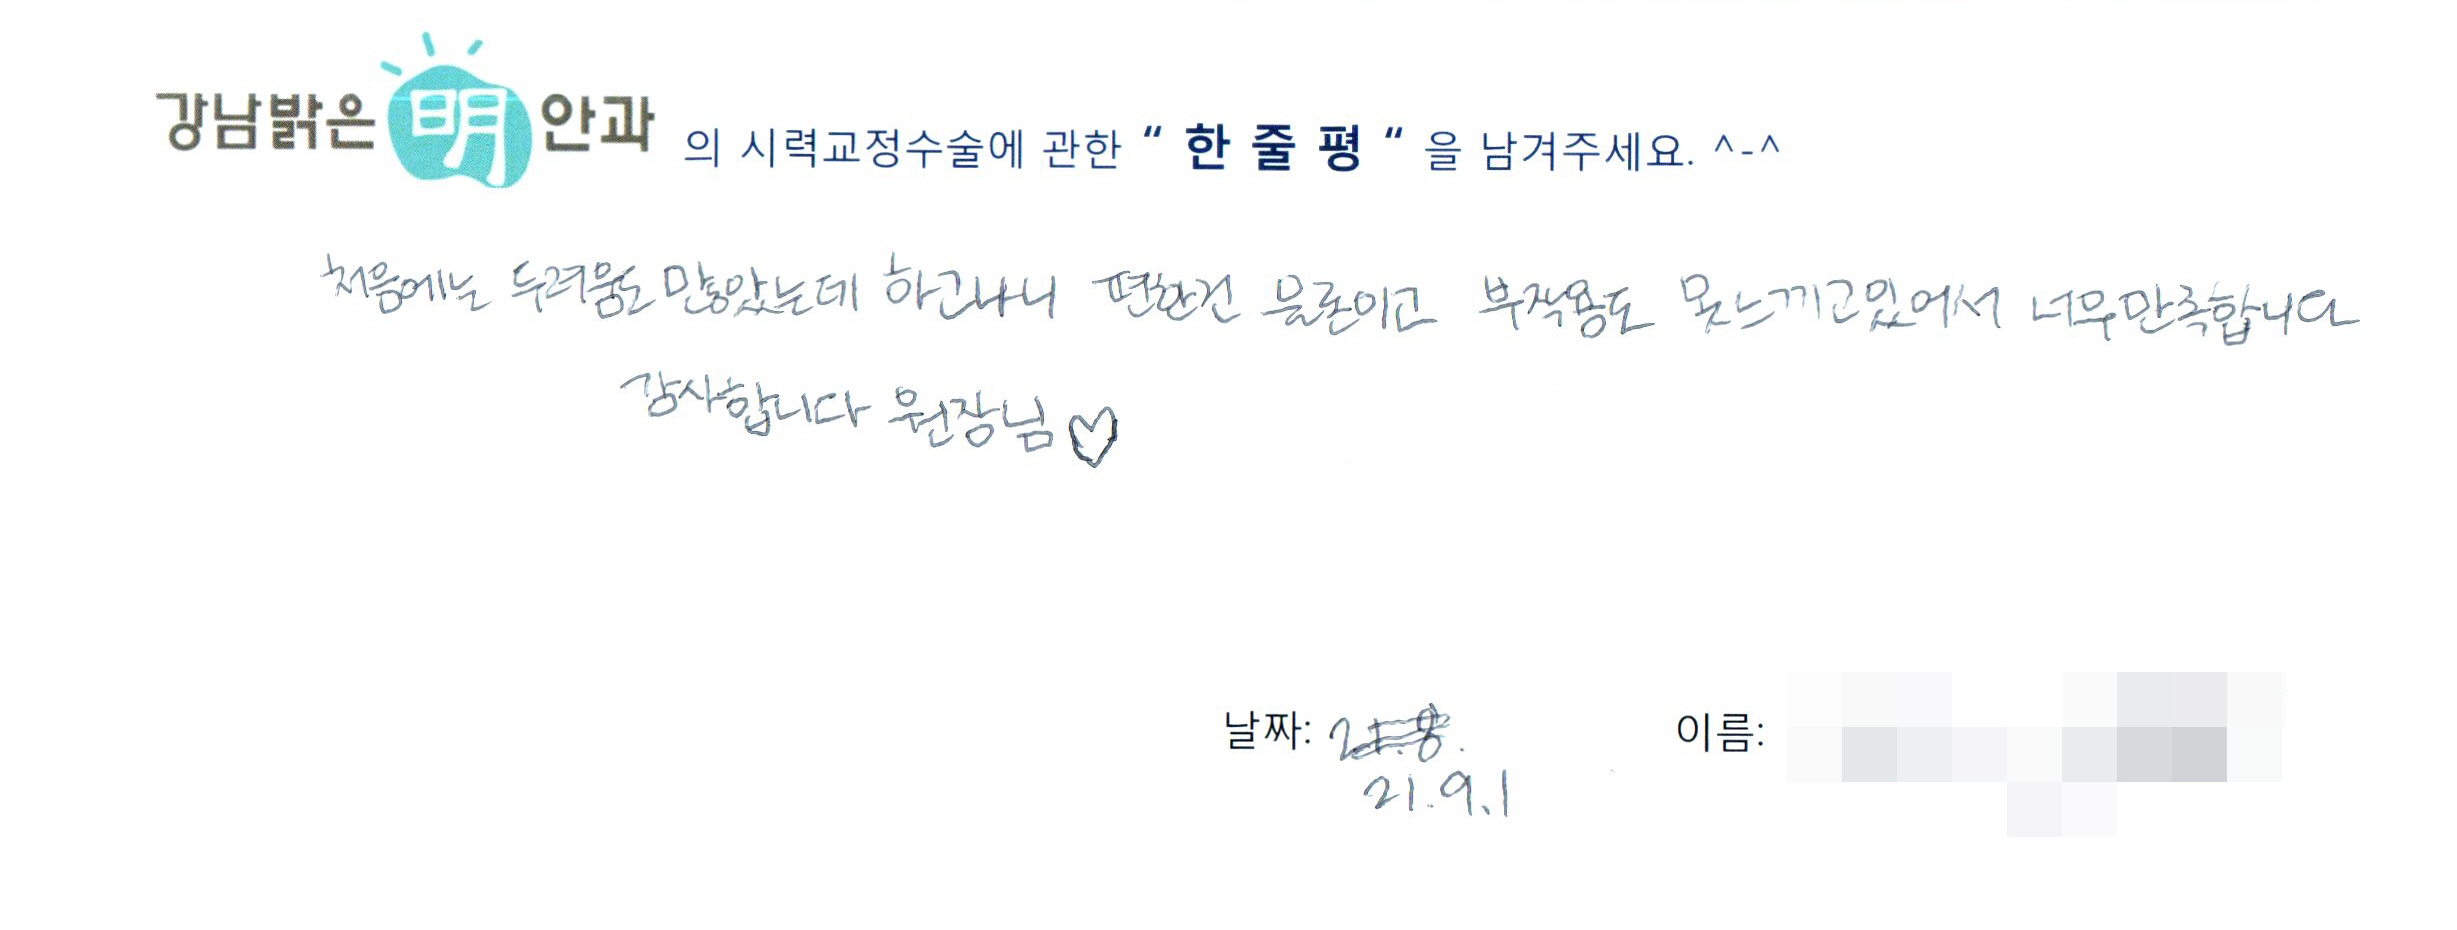 강남밝은明안과 의 시력교정수술에 관한 “ 한 줄 평 “ 을 남겨주세요. ^-^
처음에는 두려움도 많았는데 하고나니 편한건 물론이고 부작용도 못느끼고있어서 너무만족합니다
감사합니다 원장님♡
날짜: 21.8. 이름:
21.9.1